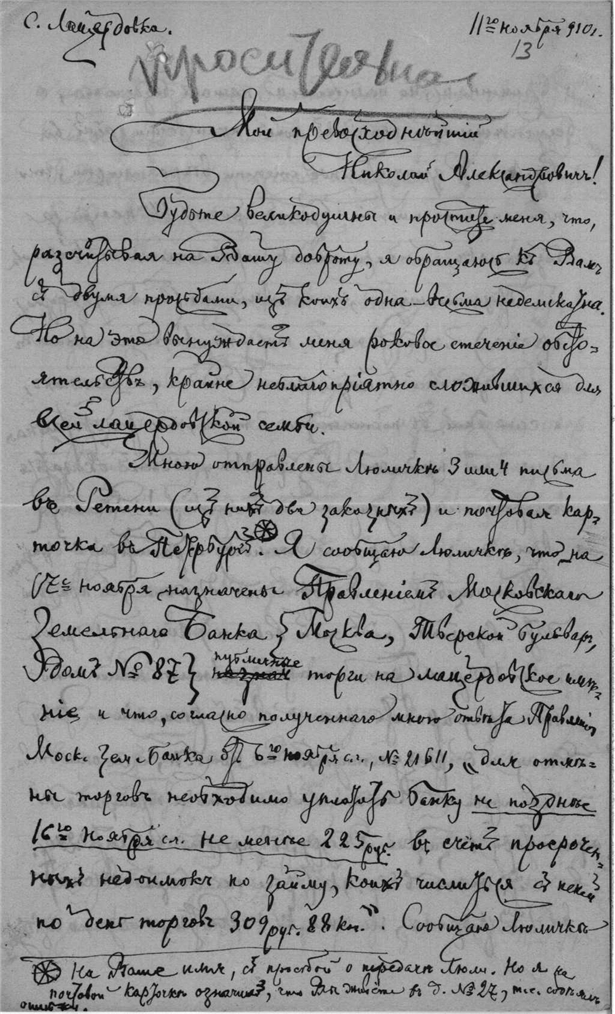 С. Лацердовка.
11го ноября 910 г.
13
Мой превосходнѣйшій
Николай Александровичъ!
Будьте великодушны и простите меня, что,
разсчитывая на Вашу доброту, я обращаюсь къ Вамъ
съ двумя просьбами, изъ коихъ одна – весьма неделикатна.
Но на это вынуждаетъ меня роковое стеченіе обсто-
ятельствъ, крайне неблагопріятно сложившихся для
всей лацердовской семьи.
Мною отправлены Люличкѣ 3 или 4 письма
въ Ретени (изъ нихъ два заказныхъ) и почтовая кар-
точка въ Петербургъ. Я сообщаю Люличкѣ, что на
17е ноября назначены Правленіемъ Московскаго
Земельнаго Банка {Москва, Тверской бульваръ,
домъ № 87} публичные торги на лацердовское имѣ-
ніе и что, согласно полученнаго мною отвѣта Правленія
Моск. Зем. Банка отъ 6го ноября с.г., № 21611, „для отмѣ-
ны торговъ необходимо уплатить банку не позднѣе
16го ноября с.г. не менѣе 225 руб. въ счетъ просрочен-
ныхъ недоимокъ по займу, коихъ числится съ пеней
по день торговъ 309 руб. 88 коп.“. Сообщаю Люличкѣ
На Ваше имя, съ просьбой о передачѣ Люл. Но я на
почтовой карточкѣ означилъ, что Вы живете въ д. № 27, т.е.